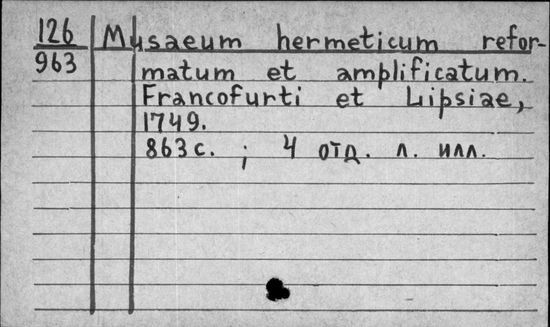 126 Musaeum hermeticum refor-
963 matum et amplificatum.
Francofurti et Lipsiae,
1749.
863 с. ; 4 отд. л. илл.